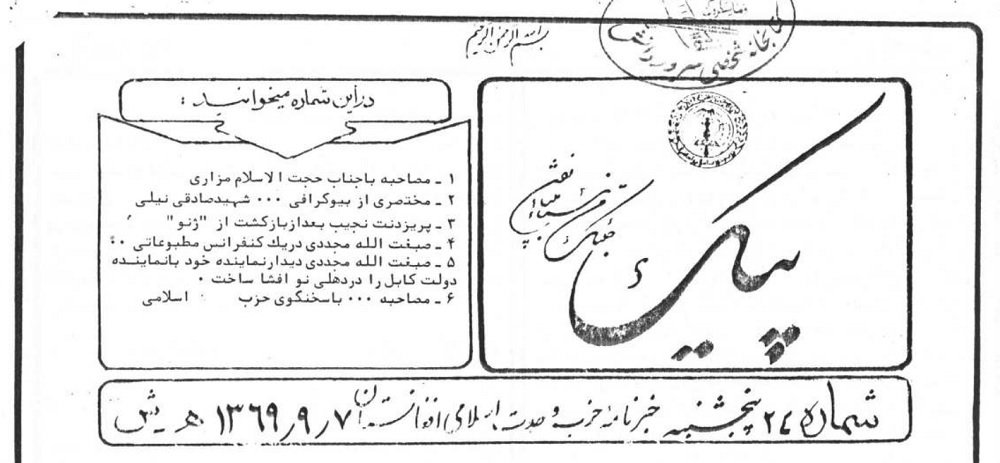 بسم الله الرحمن الرحیم
کتابخانه شخصی سرور دانش
پیک
در این شماره میخوانید :
۱ ـ مصاحبه با جناب حجت الاسلام مزاری
۲ ـ مختصری از بیوگرافی ۰۰۰ شهید صادقی نیلی
۳ ـ پریزدنت نجیب بعد از بازگشت از "ژنو"
۴ ـ صبغت الله مجددی دریک کنفرانس مطبوعاتی
۵ ـ صبغت الله مجددی دیدار نماینده خود با نماینده
دولت کابل را در دهلی نو افشا ساخت ۰
۶ ـ مصاحبه ۰۰۰ با سخنگوی حزب اسلامی
شماره ۲۴ پنجشنبه خبرنامه حزب وحدت اسلامی افغانستان ۱۳۶۹٫۹٫۷ هـ ش